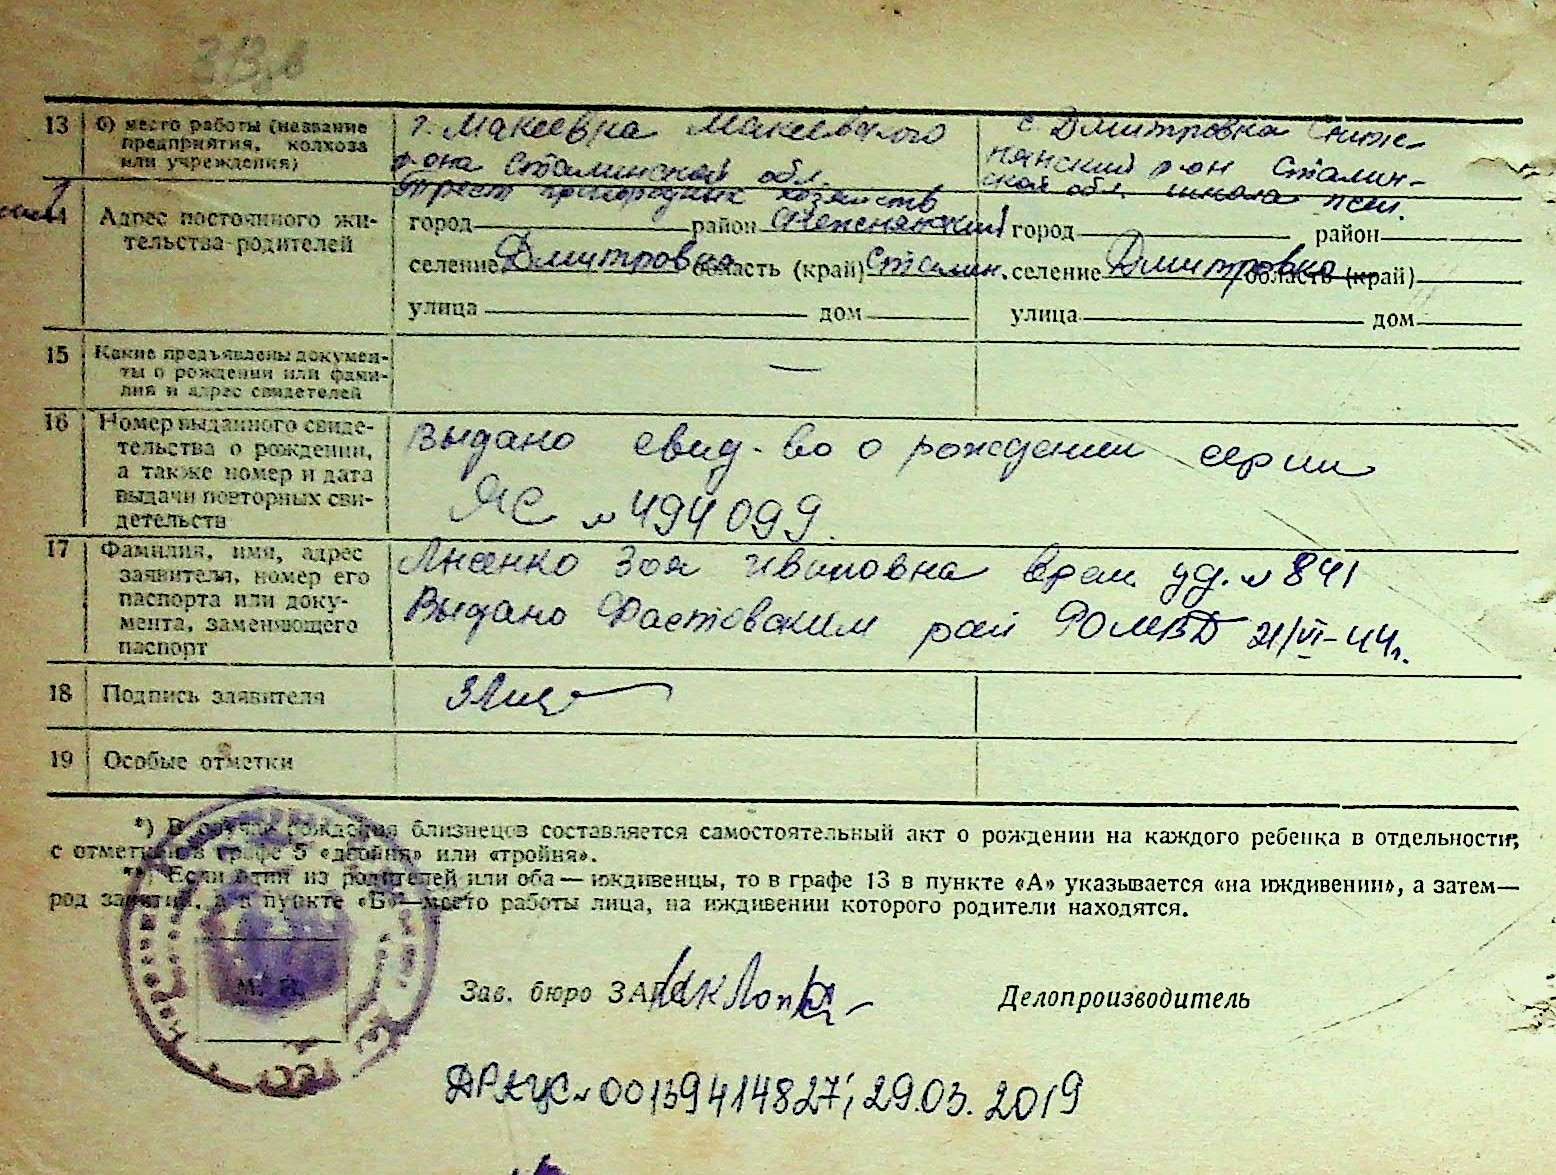 13 б) место работы (название предприятия, колхоза или учреждения)
г. Макеевка Макеевского р-она Сталинской обл. Трест пригородних хозяйств
с. Дмитровка Снежнянский р-он Сталинской обл. школа
14 Адрес постоянного жительства родителей
город район Снежнянский
селение Дмитровка область (край) Сталин.
улица дом
город район
селение Дмитровка область (край)
улица дом
15 Какие предъявлены документы о рождении или фамилия и адрес свидетелей —
16 Номер выданного свидетельства о рождении, а также номер и дата выдачи повторных свидетельств
Выдано свид-во о рождении серии
ЯС № 494099.
17 Фамилия, имя, адрес заявителя, номер его паспорта или документа, заменяющего паспорт
Зоя Ивановна врем. уд. № 841
Выдано Фастовским рай РОМВД 21/VI-44г.
18 Подпись заявителя
19 Особые отметки
*) В случае рождения близнецов составляется самостоятельный акт о рождении на каждого ребенка в отдельности,
с отметкой в графе 5 «двойня» или «тройня».
**) Если один из родителей или оба — иждивенцы, то в графе 13 в пункте «А» указывается «на иждивении», а затем—
род занятий, а в пункте «Б»—место работы лица, на иждивении которого родители находятся.
М. П.
Зав. бюро ЗАГС
Делопроизводитель
ДРАЦС № 00139414827; 29.03.2019